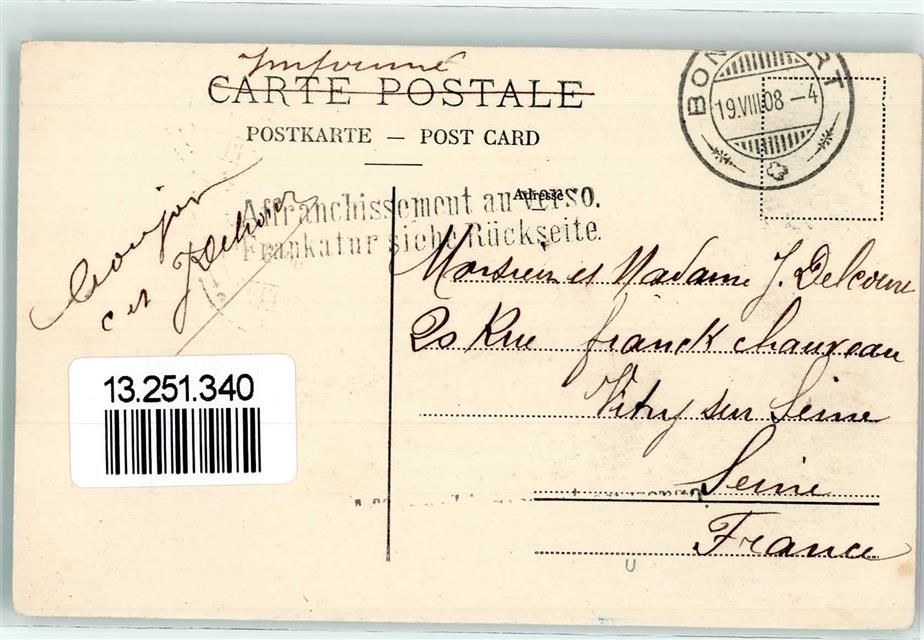 Imprimé
CARTE POSTALE
POSTKARTE — POST CARD
19.VIII.08 – 4
Adresse
Affranchissement au verso.
Frankatur siehe Rückseite.
Monsieur et Madame J. Delcourt
Rue franck chauveau
Vitry sur Seine
Seine
France
13.251.340
U